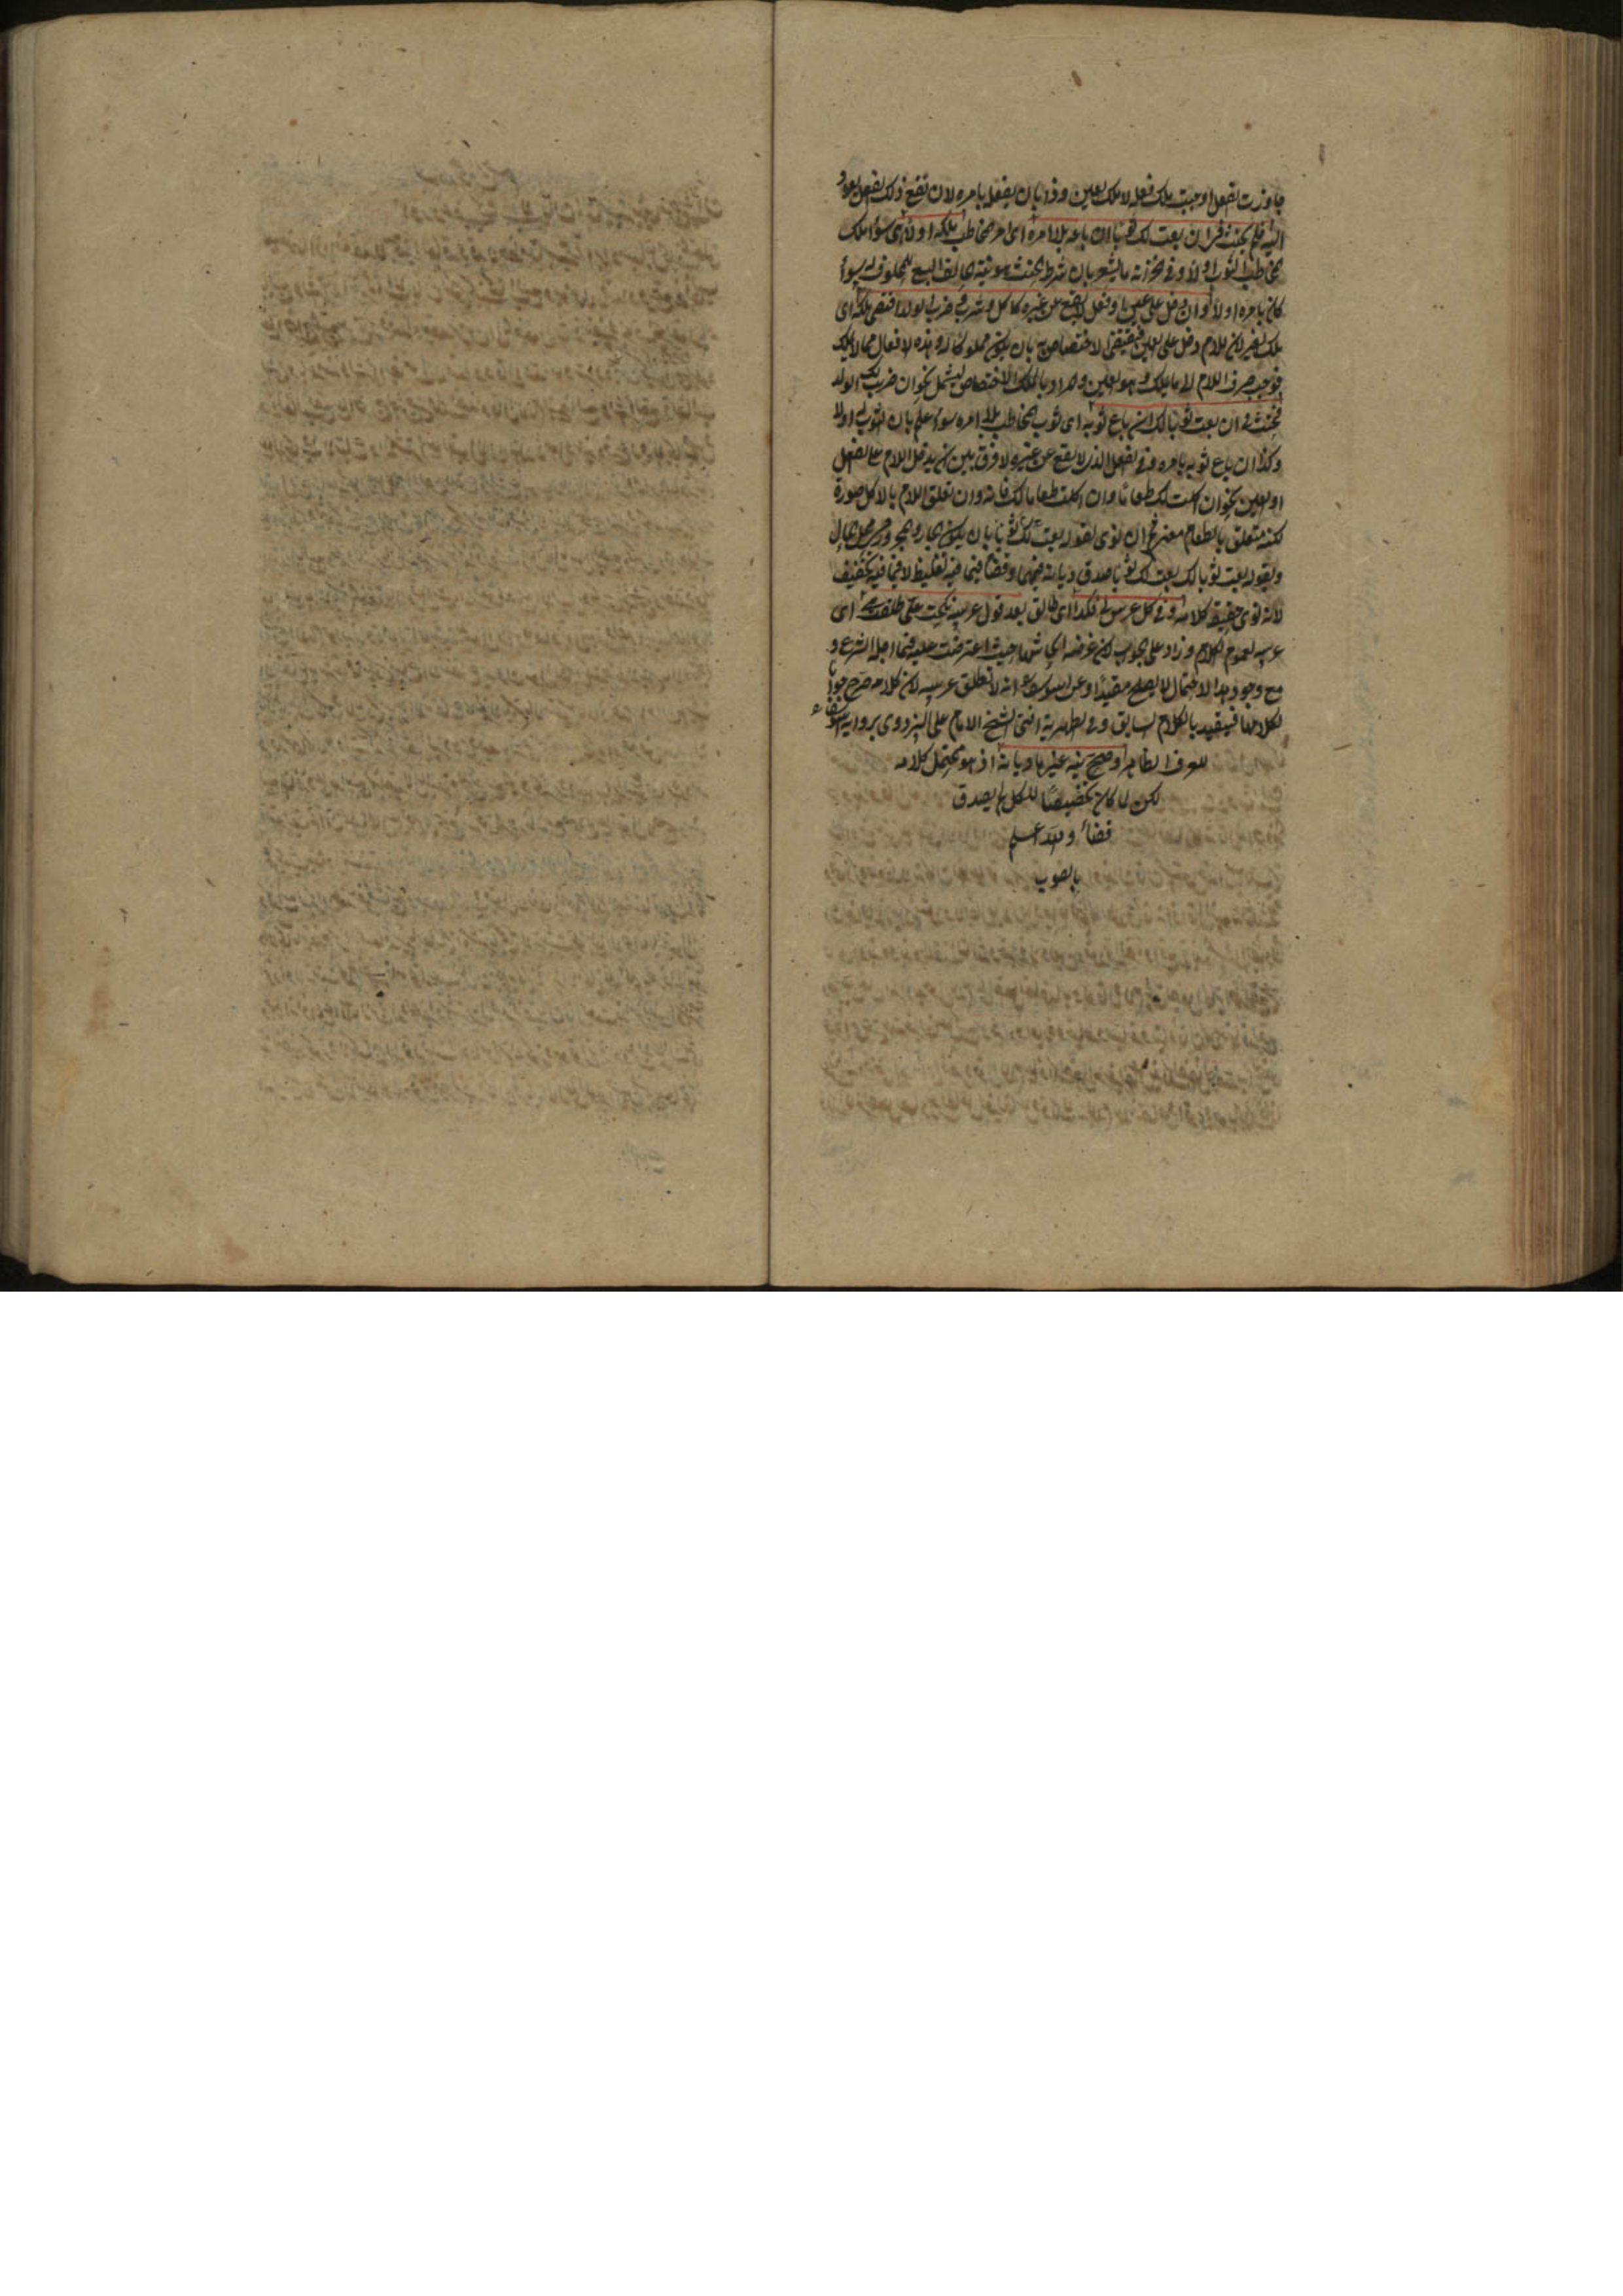 جاوزت الفعل اوجبت ملك فعله لا ملك العين وذا بان يفعله بامره لان نفع ذلك الفعل يعود
اليه فلم يحنث في ان بعت لك ثوبا ان باعه بلا امره اى امر المخاطب ملكه او لا اى سواء ملك
المخاطب الثوب او لا وفي الخزانة ما يشعر بان شرط الحنث هو نية الحالف البيع للمحلوف له سواء
كان بامره او لا وان دخل على عين او فعل لا يقع عن غيره كاكل وشرب وضرب الولد اقتضى ملكه اى
ملك الغير لان اللام دخل على العين فيقتضى الاختصاص به بان يكون مملوكا له وهذه الافعال مما لا يملك
فوجب صرف اللام الى ما يملك وهو العين والمراد بالملك الاختصاص ليشمل نحو ان ضرب لك الولد
فحنث في ان بعت ثوبا لك ان باع ثوبه اى ثوب المخاطب بلا امره سواء علم بان الثوب له او لا
وكذا ان باع ثوبه بامره وفي الفعل الذى لا يقع عن غيره لا فرق بين ان يدخل اللام على الفعل
او العين نحو ان اكلت لك طعاما وان اكلت طعاما لك فانه وان تعلق اللام بالاكل صورة
لكنه متعلق بالطعام معنى ان نوى بقوله بعت لك ثوبا بان يكون الجار والمجرور في محل الحال
وبقوله بعت ثوبا لك بعت لك ثوبا صدق ديانة فيهما وقضاء فيما فيه تغليظ لا فيما فيه تخفيف
لانه نوى حقيقة كلامه وفي كل عرس لى فكذا اى طالق بعد قول عرسه نكحت على طلقت اى
عرسه لعموم الكلام وزاد على الجواب لان غرضه ايحاشها حيث اعترضت عليه فيما احله الشرع و
مع وجود هذا الاحتمال لا يصلح مقيدا وعن ابى يوسف انه لا تطلق عرسه لان كلامه خرج جوابا
لكلامها فيتقيد بالكلام السابق وفي الظهيرية افتى الشيخ الامام على البزدوى برواية ابى يوسف
للعرف الظاهر وصح نية غيرها ديانة اذ هو محتمل كلامه
لكن لما كان تخصيصا للكل لم يصدق
قضاء والله اعلم
بالصواب